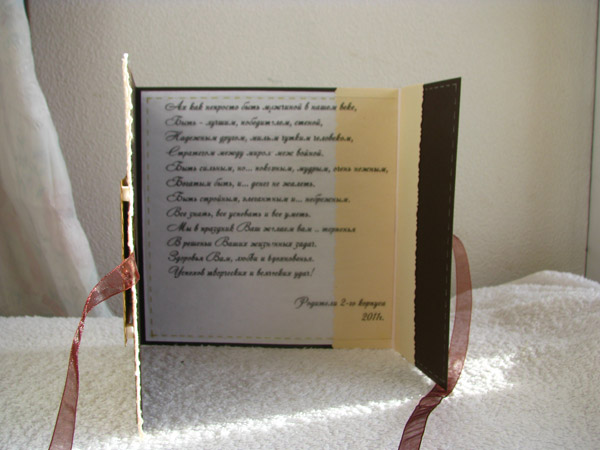 Ах как непросто быть мужчиной в нашем веке,
Быть - лучшим, победителем, стеной,
Надежным другом, милым чутким человеком,
Стратегом между миром меж войной.
Быть сильным, но... ловким, мудрым, очень нежным,
Богатым быть, и... денег не жалеть.
Быть стройным, элегантным и... небрежным.
Все знать, все успевать и все уметь.
Мы в праздник Ваш желаем вам .. терпенья
В решеньи Ваших жизненных задач.
Здоровья Вам, любви и вдохновенья.
Успехов творческих и великих удач!
Родители 2-го корпуса
2011г.